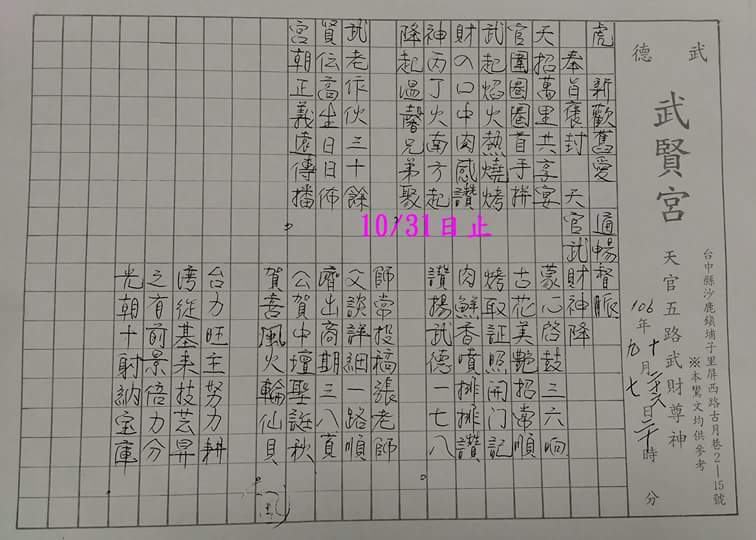 武德
武賢宮
天官五路武財尊神
台中縣沙鹿鎮埔子里屏西路古月巷2—15號
※本鸞文均供參考
106年十月廿六日二十時 分
九 七
虎 新歡舊愛 通暢督脈
奉旨褒封 天官武財神降
天招萬里共享宴 蒙心啓鼓三六响
官圍圈圈首手拼 古花美艷招常順
武起焰火熱燒烤 烤取証照開門記
財の口中肉感讚 肉鮮香噴排排讚
神丙丁火南方起 讚揚武德一七八
降起溫馨兄弟聚
師常投稿張老師
武老作伙三十餘 父談詳細一路順
賢伝高生日日佈 濟出商期三八真
宮朝正義遠傳播 公賀中壇聖誕秋
賀喜風火輪仙貝
台力旺主努力耕
湾從基来技芸昇
之有前景倍力分
光朝十射納宝庫
10/31日止